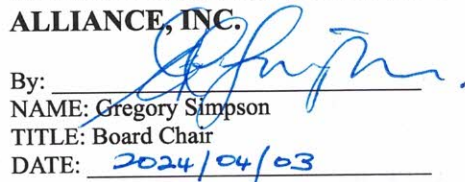 ALLIANCE, INC.
By:
NAME: Gregory Simpson
TITLE: Board Chair
DATE: 2024/04/03